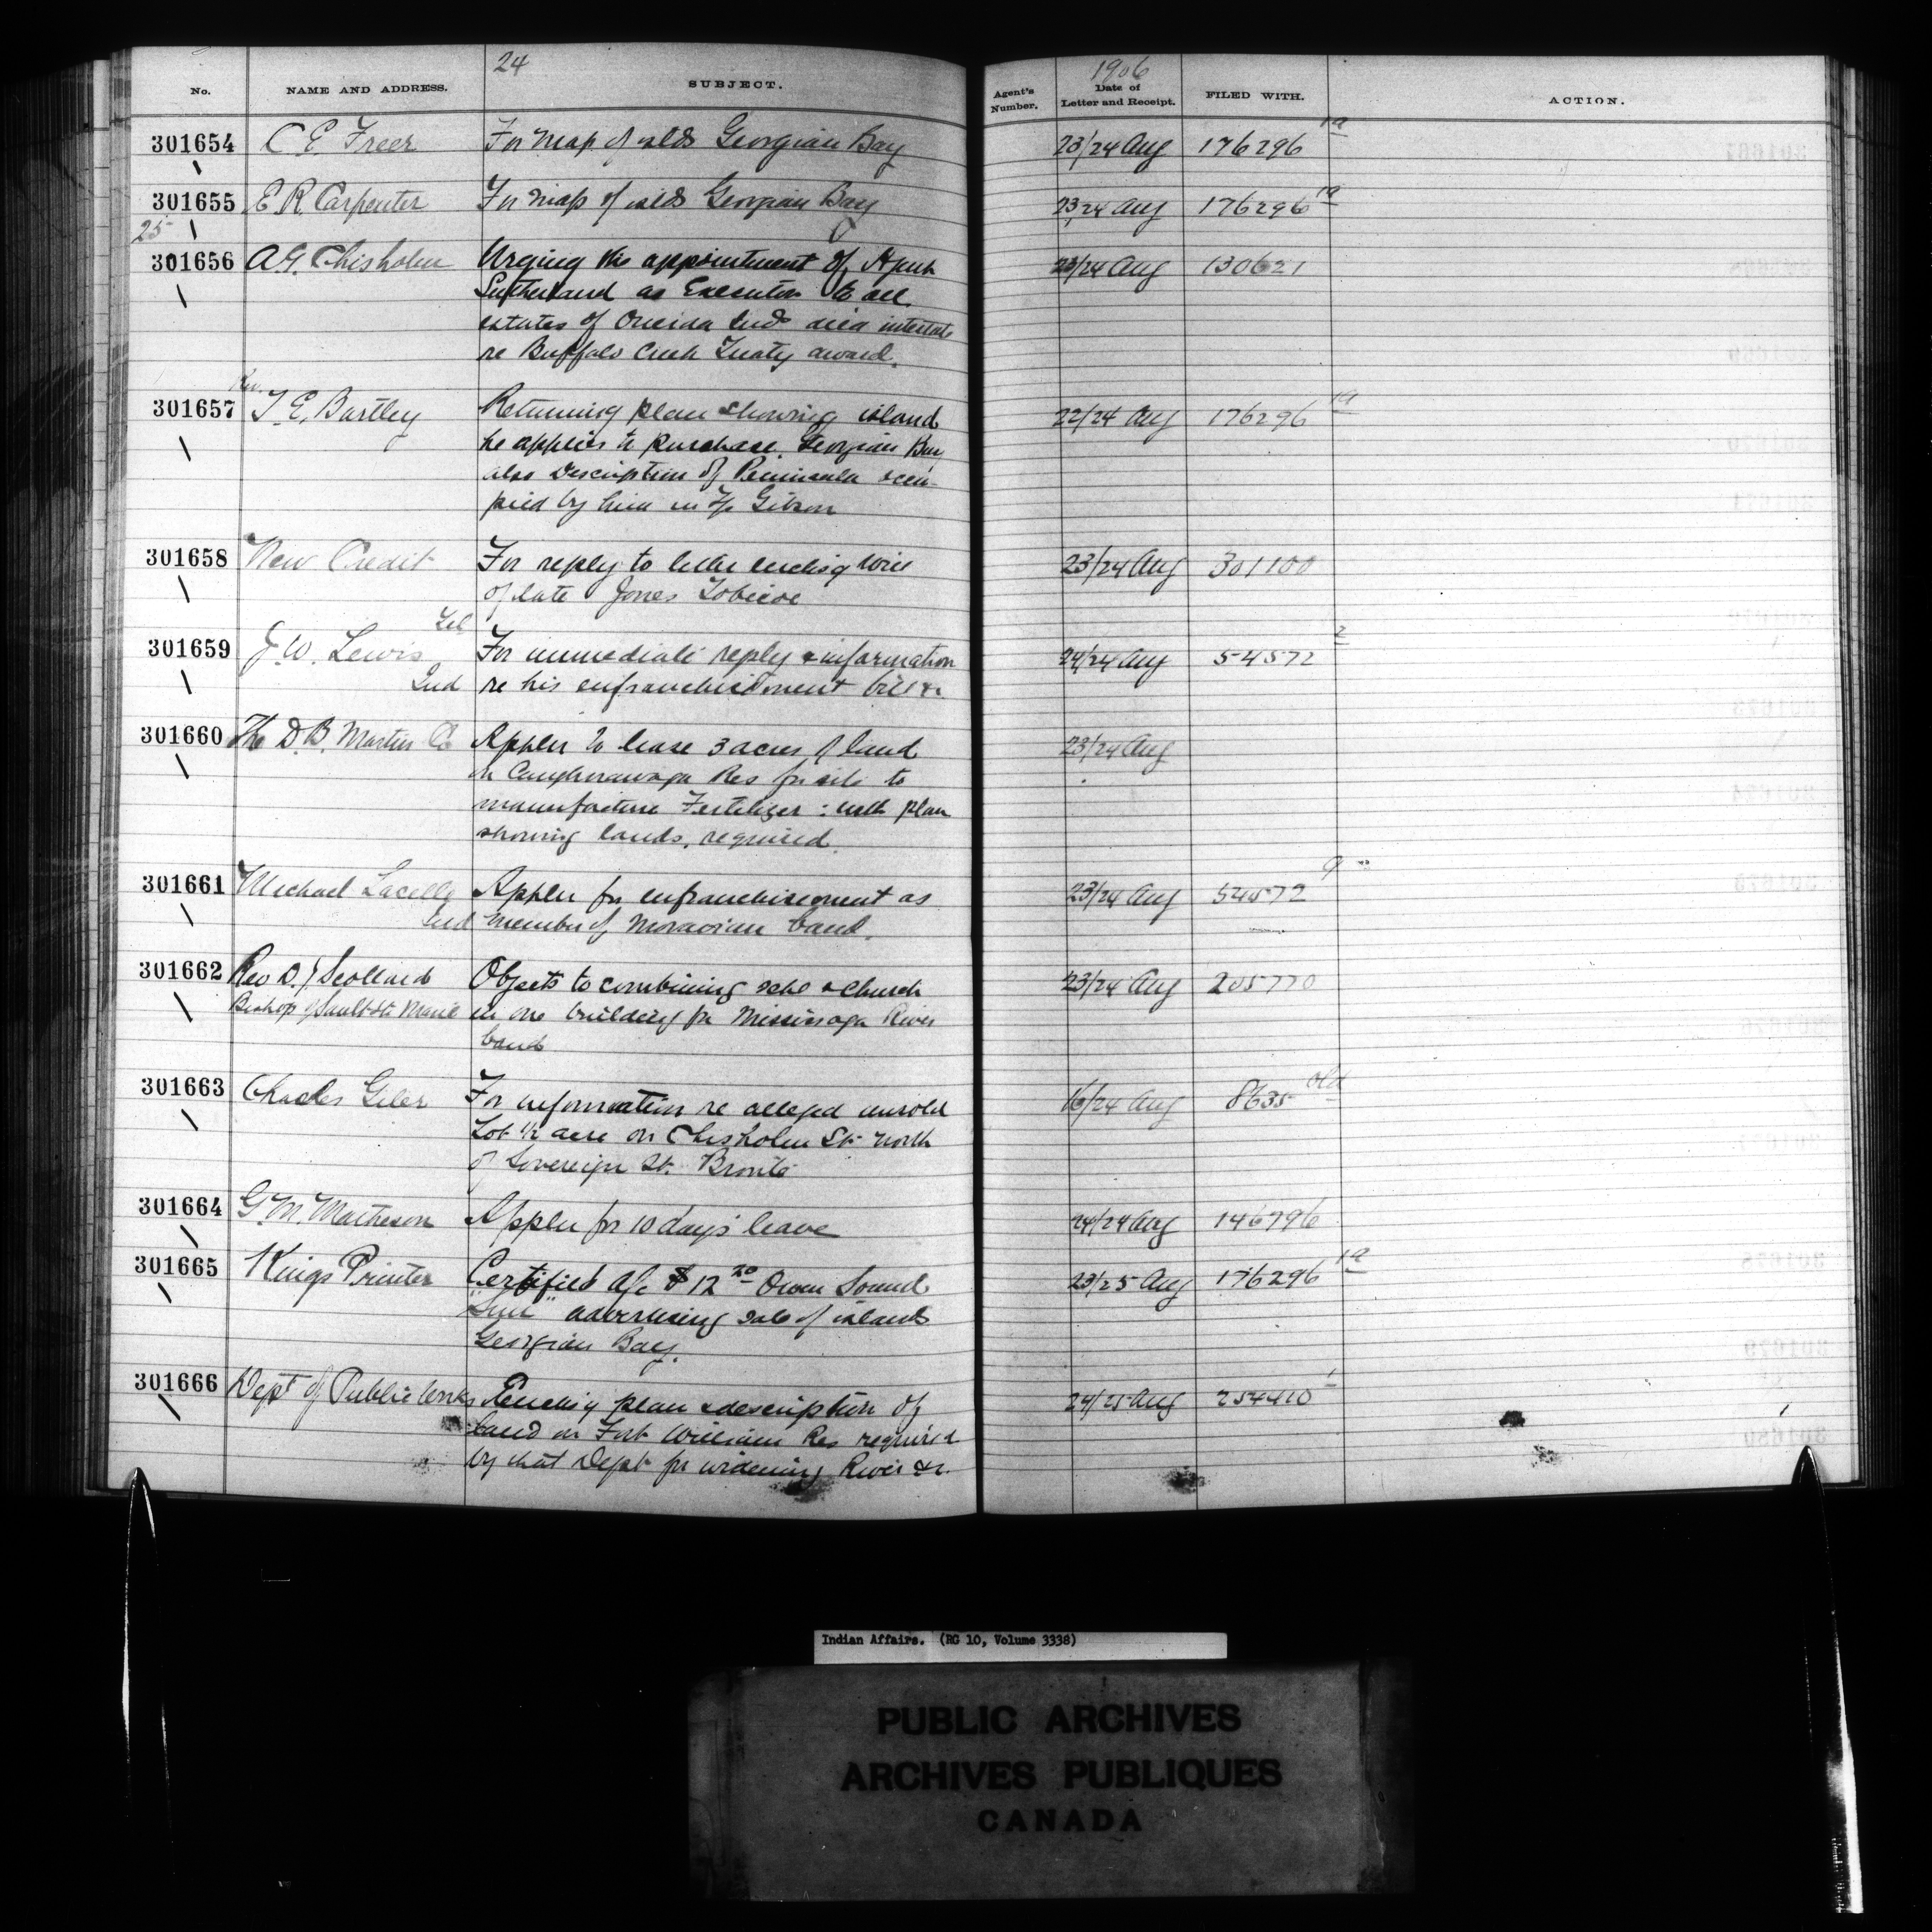 24
1906
No.
NAME AND ADDRESS.
SUBJECT.
Agent's Number.
Date of Letter and Receipt.
FILED WITH.
ACTION.
301654 C E. Freer For map of islds Georgian Bay 23/24 Aug 176296 1a
301655 E R. Carpenter For map of islds Georgian Bay 23/24 Aug 176296 1a
25
301656 A G. Chisholm Urging the appointment of Agent 23/24 Aug 130621
Sutherland as Executor to all
estates of Oneida Inds died intestate
re Buffalo Creek Treaty award.
Rev.
301657 T. E. Bartley Returning plan showing island 22/24 Aug 176296 1a
he applies to purchase. Georgian Bay
also Description of Peninsula occu-
pied by him in Tp Gibson
301658 New Credit For reply to letter enclosg will 23/24 Aug 301100
of late Jones Tobicoe
Tel
301659 J. W. Lewis For immediate reply & information 24/24 Aug 54572 2
Ind re his enfranchisement bill &c.
301660 The D. B. Martin Co Applcn to lease 3 acres of land 23/24 Aug
on Caughnawaga Res for site to
manufacture Fertilizer: with plan
showing lands, required.
301661 Michael Lacelle Applcn for enfranchisement as 23/24 Aug 54572 9
Ind member of Moravian band.
301662 Rev D. J Scollard Objects to combining schl & church 23/24 Aug 205770
Bishop of Sault Ste Marie in one building for Mississaga River
band
301663 Charles Giler For information re alleged unsold 16/24 Aug 8635 old
Lot 1/2 acre on Chisholm St. North
of Sovereign St. Bronte
301664 G. M. Matheson Applcn for 10 days' leave 24/24 Aug 146796
301665 Kings Printer Certified a/c $12 20 Owen Sound 23/25 Aug 176296 1a
"Sun" advertising sale of islands
Georgian Bay.
301666 Dept of Public Works Enclosg plan & description of 24/25 Aug 254410 1
land on Fort William Res required
by that Dept for widening River &c.
Indian Affairs. (RG 10, Volume 3338)
PUBLIC ARCHIVES
ARCHIVES PUBLIQUES
CANADA